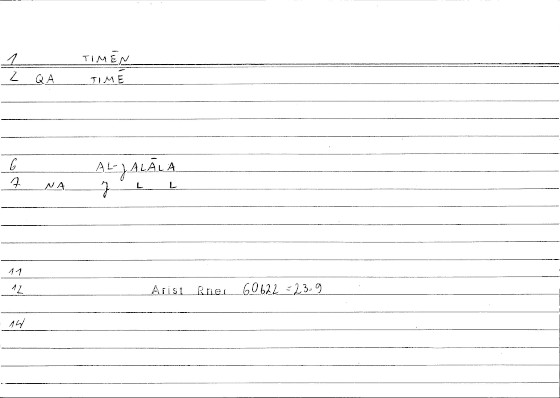 1 TIMĒN
2 QA TIMĒ
6 AL-JALĀLA
7 NA J L L
11
12 Arist Rhet 60b22 = 23.9
14